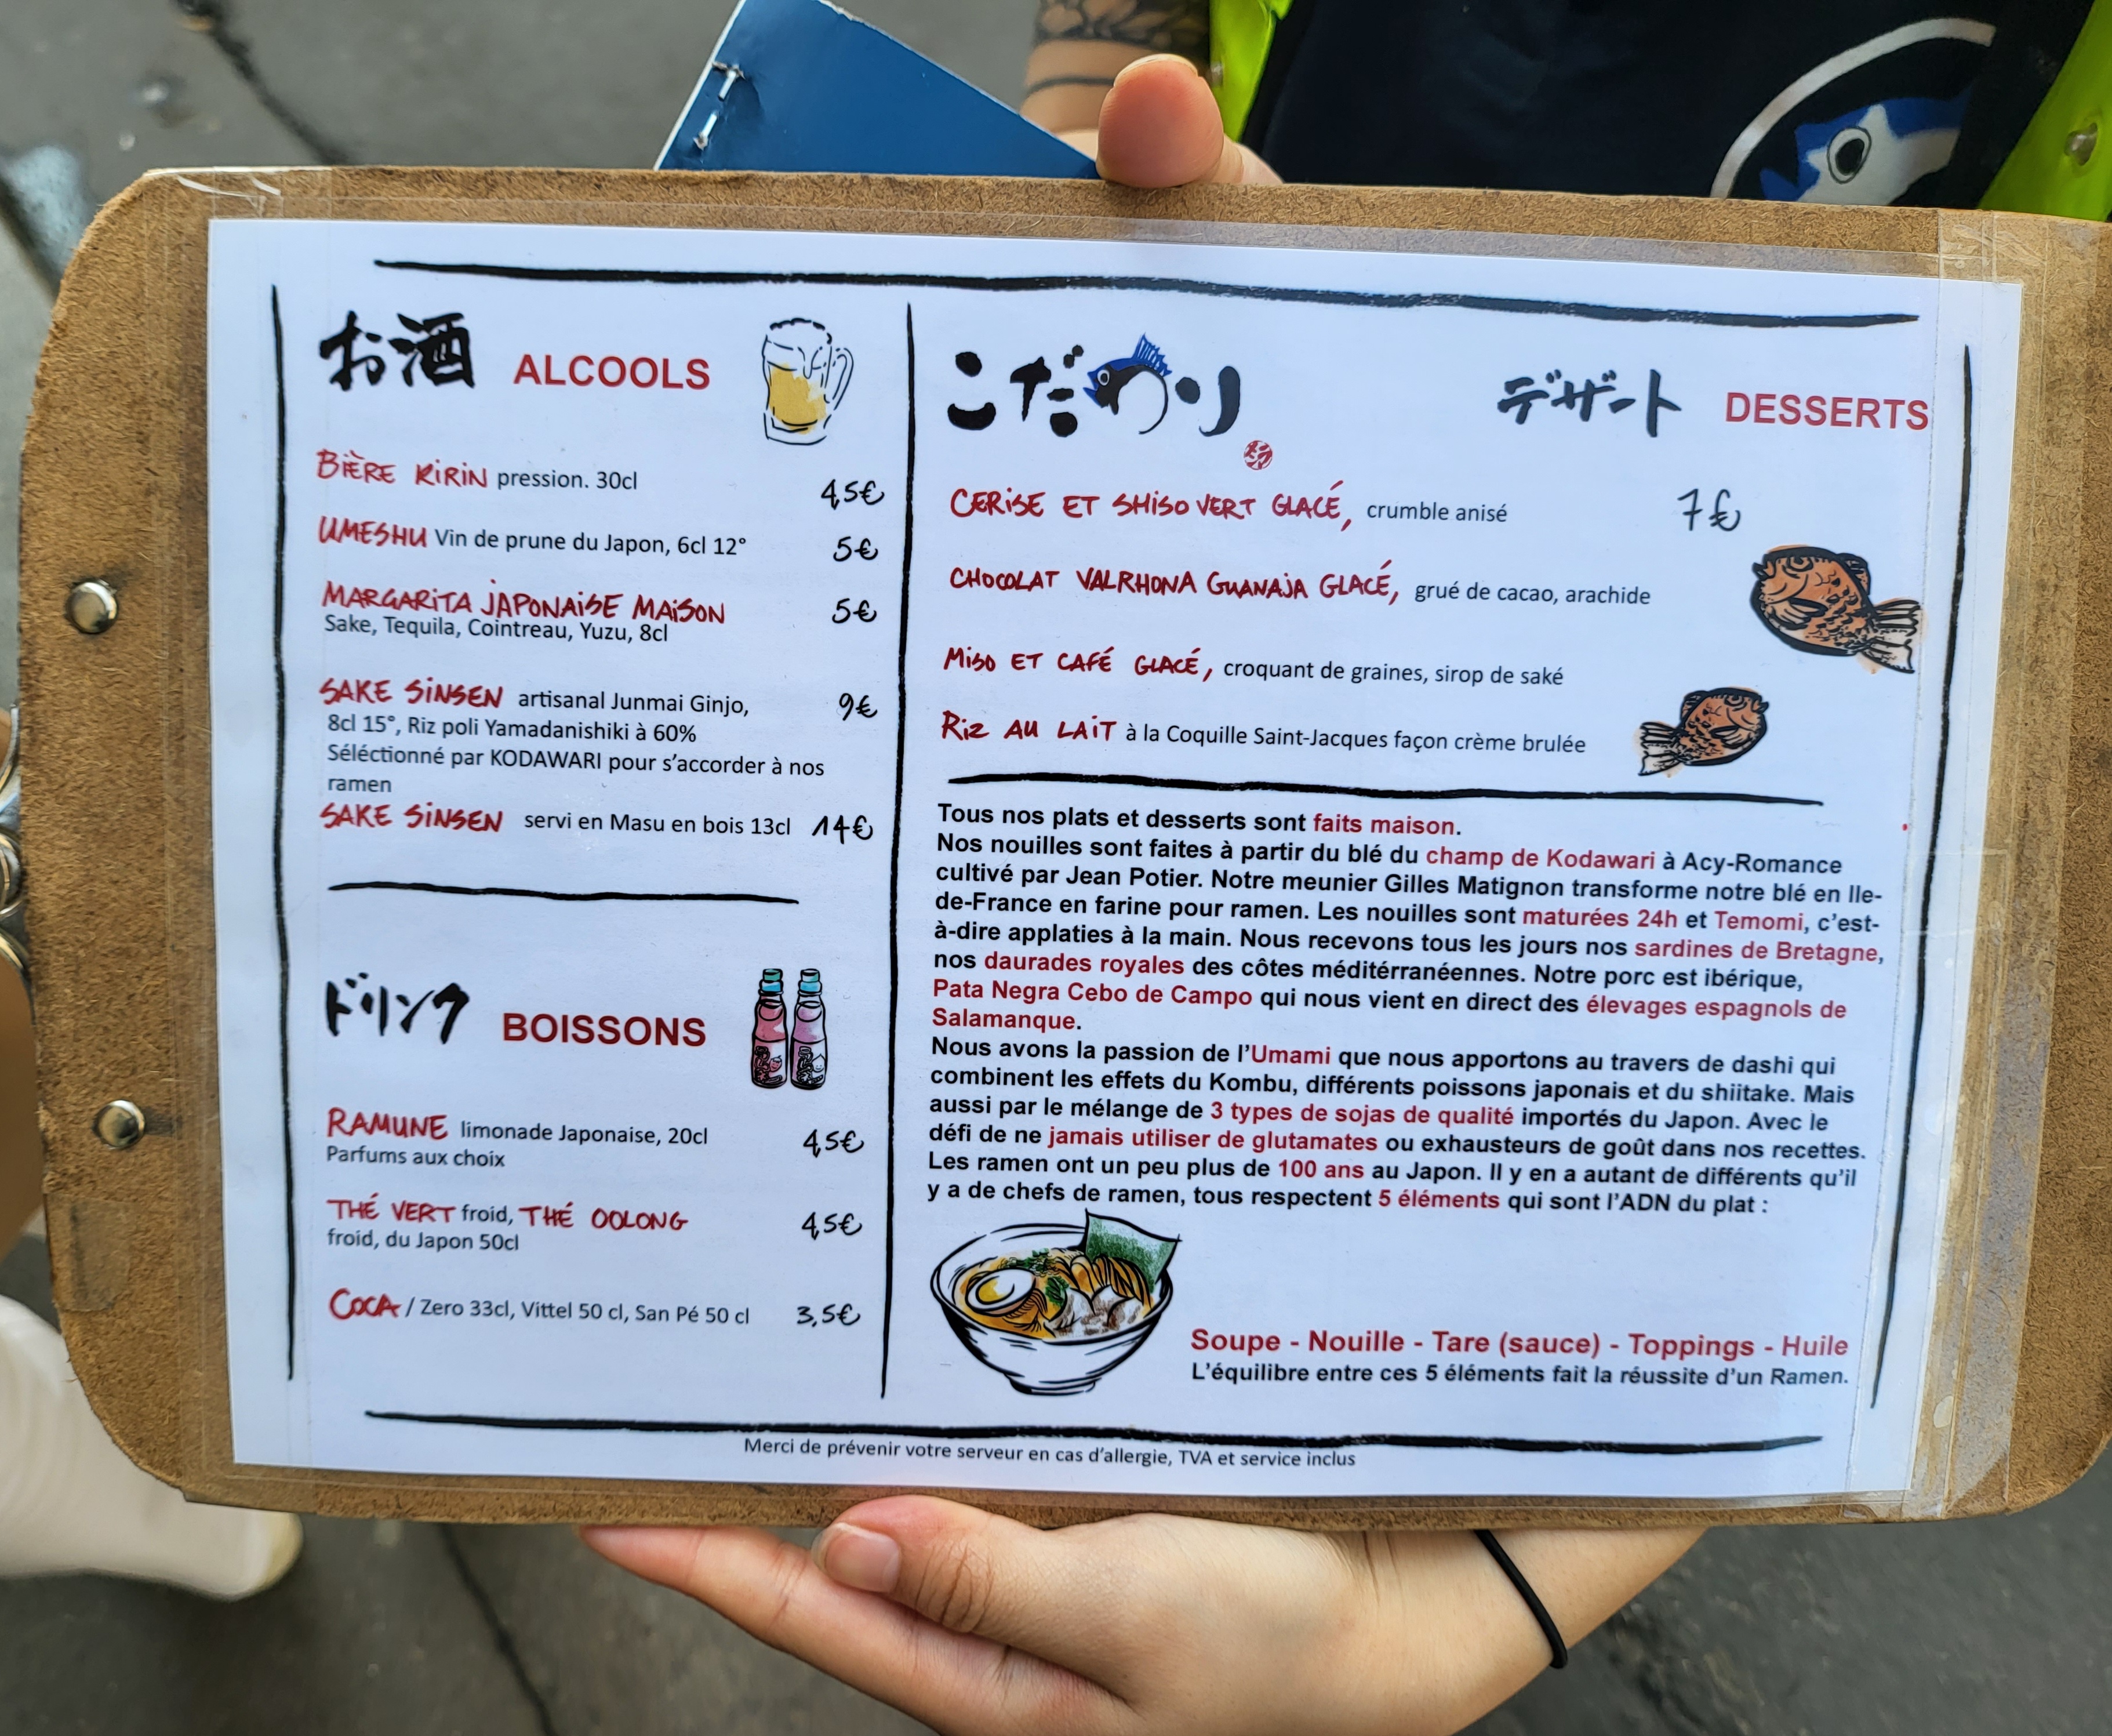 お酒 ALCOOLS
BIÈRE KIRIN pression. 30cl 4,5€
UMESHU Vin de prune du Japon, 6cl 12° 5€
MARGARITA JAPONAISE MAISON 5€
Sake, Tequila, Cointreau, Yuzu, 8cl
SAKE SINSEN artisanal Junmai Ginjo, 9€
8cl 15°, Riz poli Yamadanishiki à 60%
Séléctionné par KODAWARI pour s'accorder à nos
ramen
SAKE SINSEN servi en Masu en bois 13cl 14€
ドリンク BOISSONS
RAMUNE limonade Japonaise, 20cl 4,5€
Parfums aux choix
THÉ VERT froid, THÉ OOLONG 4,5€
froid, du Japon 50cl
COCA / Zero 33cl, Vittel 50 cl, San Pé 50 cl 3,5€
こだわり
デザート DESSERTS
CERISE ET SHISO VERT GLACÉ, crumble anisé 7€
CHOCOLAT VALRHONA GUANAJA GLACÉ, grué de cacao, arachide
MISO ET CAFÉ GLACÉ, croquant de graines, sirop de saké
RIZ AU LAIT à la Coquille Saint-Jacques façon crème brulée
Tous nos plats et desserts sont faits maison.
Nos nouilles sont faites à partir du blé du champ de Kodawari à Acy-Romance
cultivé par Jean Potier. Notre meunier Gilles Matignon transforme notre blé en Ile-
de-France en farine pour ramen. Les nouilles sont maturées 24h et Temomi, c'est-
à-dire applaties à la main. Nous recevons tous les jours nos sardines de Bretagne,
nos daurades royales des côtes méditérranéennes. Notre porc est ibérique,
Pata Negra Cebo de Campo qui nous vient en direct des élevages espagnols de
Salamanque.
Nous avons la passion de l'Umami que nous apportons au travers de dashi qui
combinent les effets du Kombu, différents poissons japonais et du shiitake. Mais
aussi par le mélange de 3 types de sojas de qualité importés du Japon. Avec le
défi de ne jamais utiliser de glutamates ou exhausteurs de goût dans nos recettes.
Les ramen ont un peu plus de 100 ans au Japon. Il y en a autant de différents qu'il
y a de chefs de ramen, tous respectent 5 éléments qui sont l'ADN du plat :
Soupe - Nouille - Tare (sauce) - Toppings - Huile
L'équilibre entre ces 5 éléments fait la réussite d'un Ramen.
Merci de prévenir votre serveur en cas d'allergie, TVA et service inclus